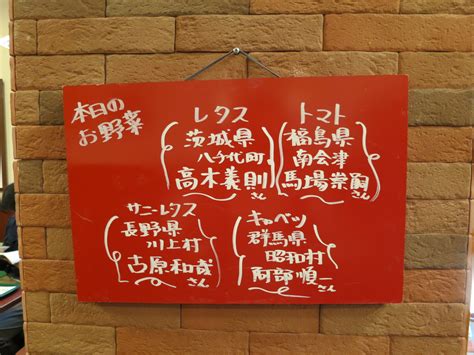 本日の
お野菜
レタス
茨城県
八千代町
高木義則
さん
トマト
福島県
南会津
馬場崇嗣
さん
サニーレタス
長野県
川上村
古原和哉
さん
キャベツ
群馬県
昭和村
阿部順一
さん